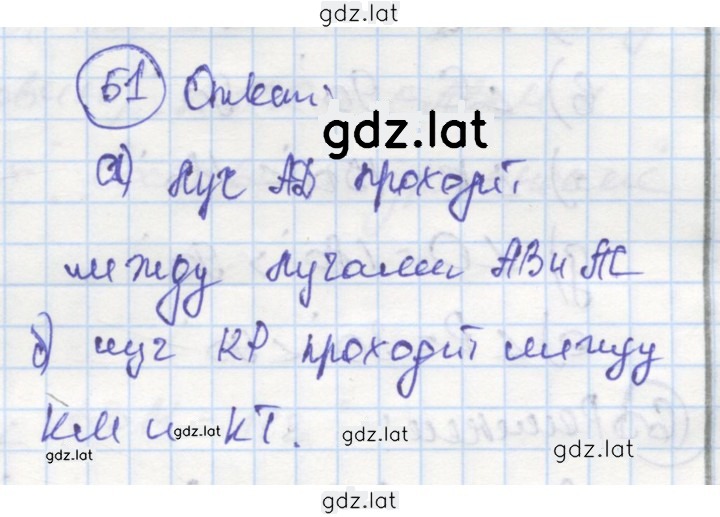 gdz.lat
51
gdz.lat
а) луч АД проходит
между лучами АВ и АС
б) луч КР проходит между
КМ и КТ.
gdz.lat
gdz.lat
gdz.lat
gdz.lat
gdz.lat